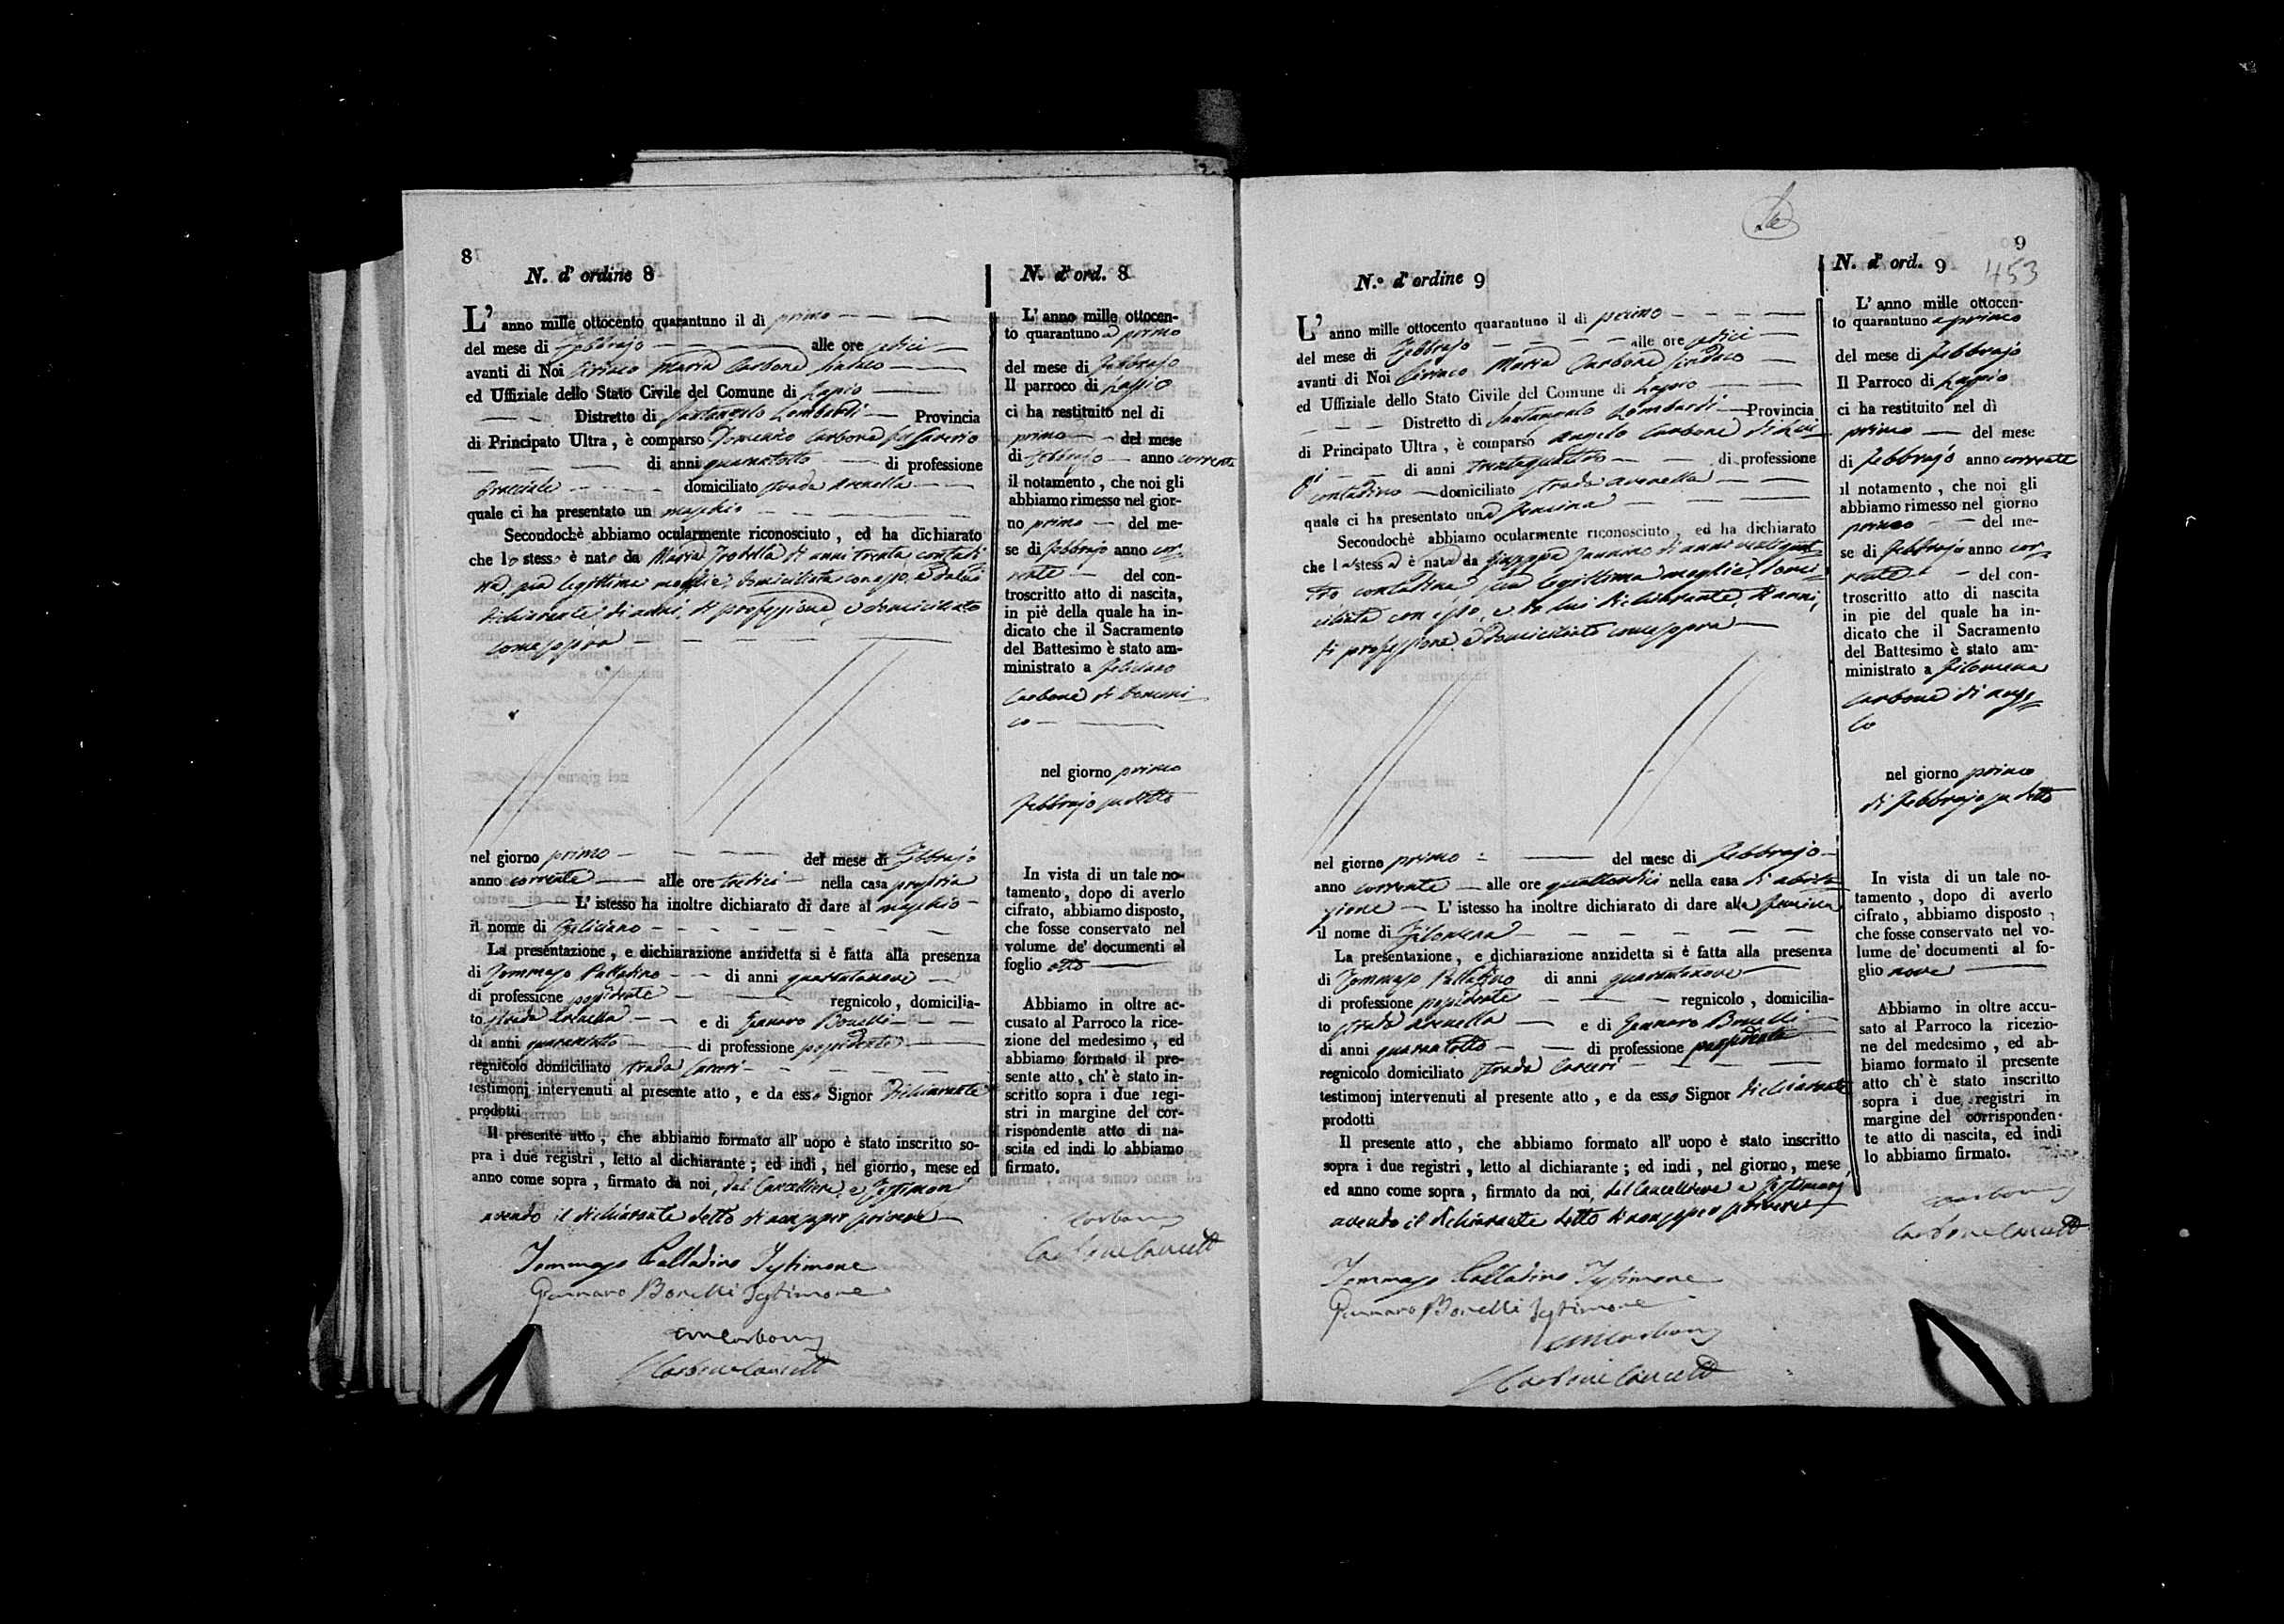 8
N. d' ordine 8
L' anno mille ottocento quarantuno il dì primo
del mese di Febbrajo alle ore sedici
avanti di Noi Ciriaco Maria Carbone Sindaco
ed Uffiziale dello Stato Civile del Comune di Lapio
Distretto di Santangelo Lombardi Provincia
di Principato Ultra, è comparso Domenico Carbone fu Saverio
di anni quarantotto di professione
Bracciale domiciliato strada Arenella
quale ci ha presentato un maschio
Secondochè abbiamo ocularmente riconosciuto, ed ha dichiarato
che lo stesso è nato da Maria di anni trenta contadi
na sua legittima moglie, domiciliata con esso, e da lui
dichiarante, di anni, di professione, e domiciliato
come sopra
nel giorno primo del mese di Febbrajo
anno corrente alle ore tredici nella casa propria
L' istesso ha inoltre dichiarato di dare al maschio
il nome di Feliciano
La presentazione, e dichiarazione anzidetta si è fatta alla presenza
di Tommaso Palladino di anni quarantanove
di professione possidente regnicolo, domicilia-
to strada Arenella e di Gennaro Bonelli
di anni quarantotto di professione possidente
regnicolo domiciliato strada Carceri
testimonj intervenuti al presente atto, e da esso Signor Dichiarante
prodotti
Il presente atto, che abbiamo formato all' uopo è stato inscritto so-
pra i due registri, letto al dichiarante; ed indi, nel giorno, mese ed
anno come sopra, firmato da noi, dal Cancelliere, e Testimon
avendo il dichiarante detto di non saper scrivere
Tommaso Palladino Testimone
Gennaro Bonelli Testimone
CMCarbone
Carbone Cancell
N. d' ord. 8
L' anno mille ottocen-
to quarantuno a primo
del mese di Febbrajo
Il parroco di Lapio
ci ha restituito nel di
primo del mese
di Febbrajo anno corrente
il notamento, che noi gli
abbiamo rimesso nel gior-
no primo del me-
se di Febbrajo anno cor-
rente del con-
troscritto atto di nascita,
in piè della quale ha in-
dicato che il Sacramento
del Battesimo è stato am-
ministrato a Feliciano
Carbone di Domeni-
co
nel giorno primo
Febbrajo sudetto
In vista di un tale no-
tamento, dopo di averlo
cifrato, abbiamo disposto,
che fosse conservato nel
volume de' documenti al
foglio otto
Abbiamo in oltre ac-
cusato al Parroco la rice-
zione del medesimo, ed
abbiamo formato il pre-
sente atto, ch' è stato in-
scritto sopra i due regi-
stri in margine del cor-
rispondente atto di na-
scita ed indi lo abbiamo
firmato.
Carbone
Carbone Cancell
9
453
N.º d' ordine 9
L' anno mille ottocento quarantuno il dì primo
del mese di Febbrajo alle ore sedici
avanti di Noi Ciriaco Maria Carbone Sindaco
ed Uffiziale dello Stato Civile del Comune di Lapio
Distretto di Santangelo Lombardi Provincia
di Principato Ultra, è comparso Angelo Carbone di Lui
gi di anni trentaquattro di professione
contadino domiciliato strada Arenella
quale ci ha presentato una femina
Secondochè abbiamo ocularmente riconosciuto, ed ha dichiarato
che la stessa è nata da Giuseppa di anni ventiquat
tro contadina, sua legittima moglie, domi
ciliata con esso, e da lui dichiarante, di anni,
di professione, e domiciliato come sopra
nel giorno primo del mese di Febbrajo
anno corrente alle ore quattordici nella casa di abita
zione L' istesso ha inoltre dichiarato di dare alla femina
il nome di Filomena
La presentazione, e dichiarazione anzidetta si è fatta alla presenza
di Tommaso Palladino di anni quarantanove
di professione possidente regnicolo, domicilia-
to strada Arenella e di Gennaro Bonelli
di anni quarantotto di professione possidente
regnicolo domiciliato strada Carceri
testimonj intervenuti al presente atto, e da esso Signor dichiarante
prodotti
Il presente atto, che abbiamo formato all' uopo è stato inscritto
sopra i due registri, letto al dichiarante; ed indi, nel giorno, mese
ed anno come sopra, firmato da noi, dal Cancelliere e Testimonj
avendo il dichiarante detto di non saper scrivere
Tommaso Palladino Testimone
Gennaro Bonelli Testimone
CMCarbone
Carbone Cancell
N. d' ord. 9
L' anno mille ottocen-
to quarantuno a primo
del mese di Febbrajo
Il Parroco di Lapio
ci ha restituito nel dì
primo del mese
di Febbrajo anno corrente
il notamento, che noi gli
abbiamo rimesso nel giorno
primo del me-
se di Febbrajo anno cor-
rente del con-
troscritto atto di nascita
in pie del quale ha in-
dicato che il Sacramento
del Battesimo è stato am-
ministrato a Filomena
Carbone di Ange-
lo
nel giorno primo
di Febbrajo sudetto
In vista di un tale no-
tamento, dopo di averlo
cifrato, abbiamo disposto,
che fosse conservato nel vo-
lume de' documenti al fo-
glio nove
Abbiamo in oltre accu-
sato al Parroco la ricezio-
ne del medesimo, ed ab-
biamo formato il presente
atto ch' è stato inscritto
sopra i due registri in
margine del corrisponden-
te atto di nascita, ed indi
lo abbiamo firmato.
Carbone
Carbone Cancell